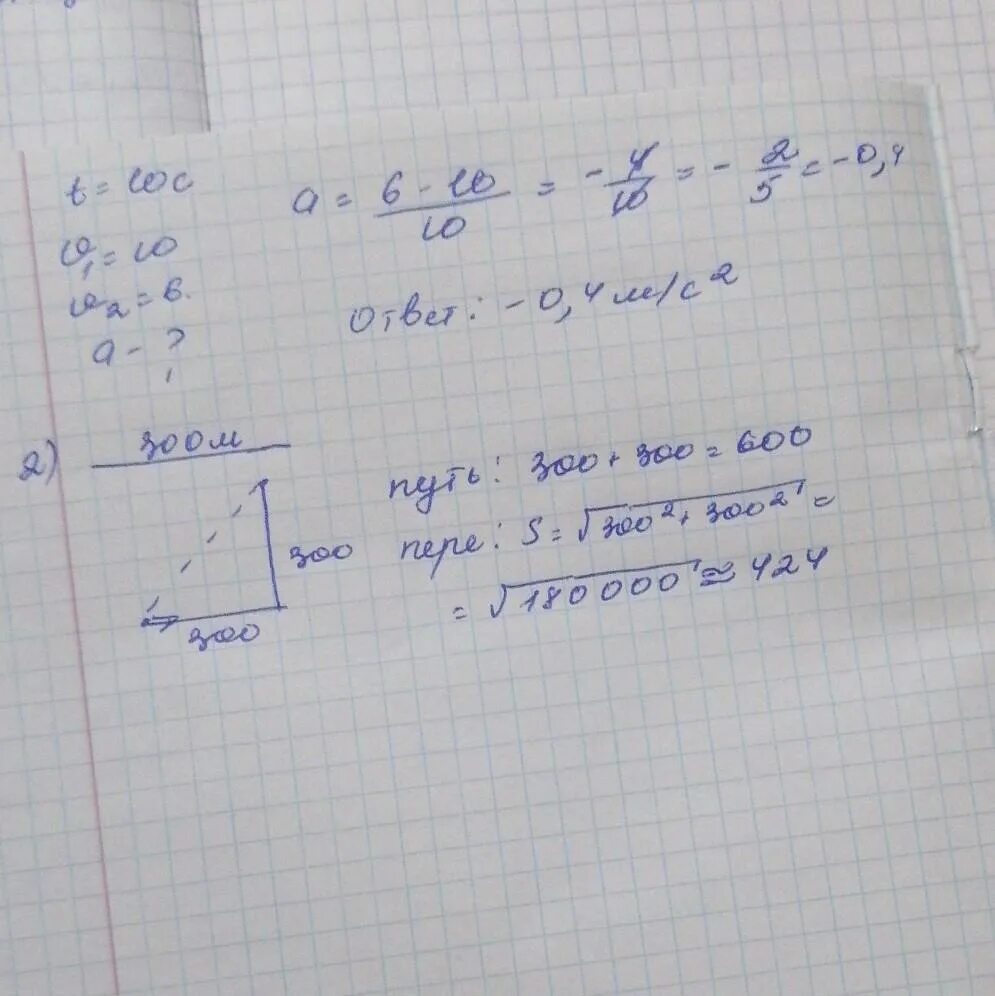 t = 10с
a = 6 - 10 / 10 = - 4/10 = - 2/5 = -0,4
υ₁ = 10
υ₂ = 6.
a - ?
Ответ: - 0,4 м/с²
2) 300м
300
300
путь: 300 + 300 = 600
пере: S = √300² + 300² =
= √180 000 ≈ 424